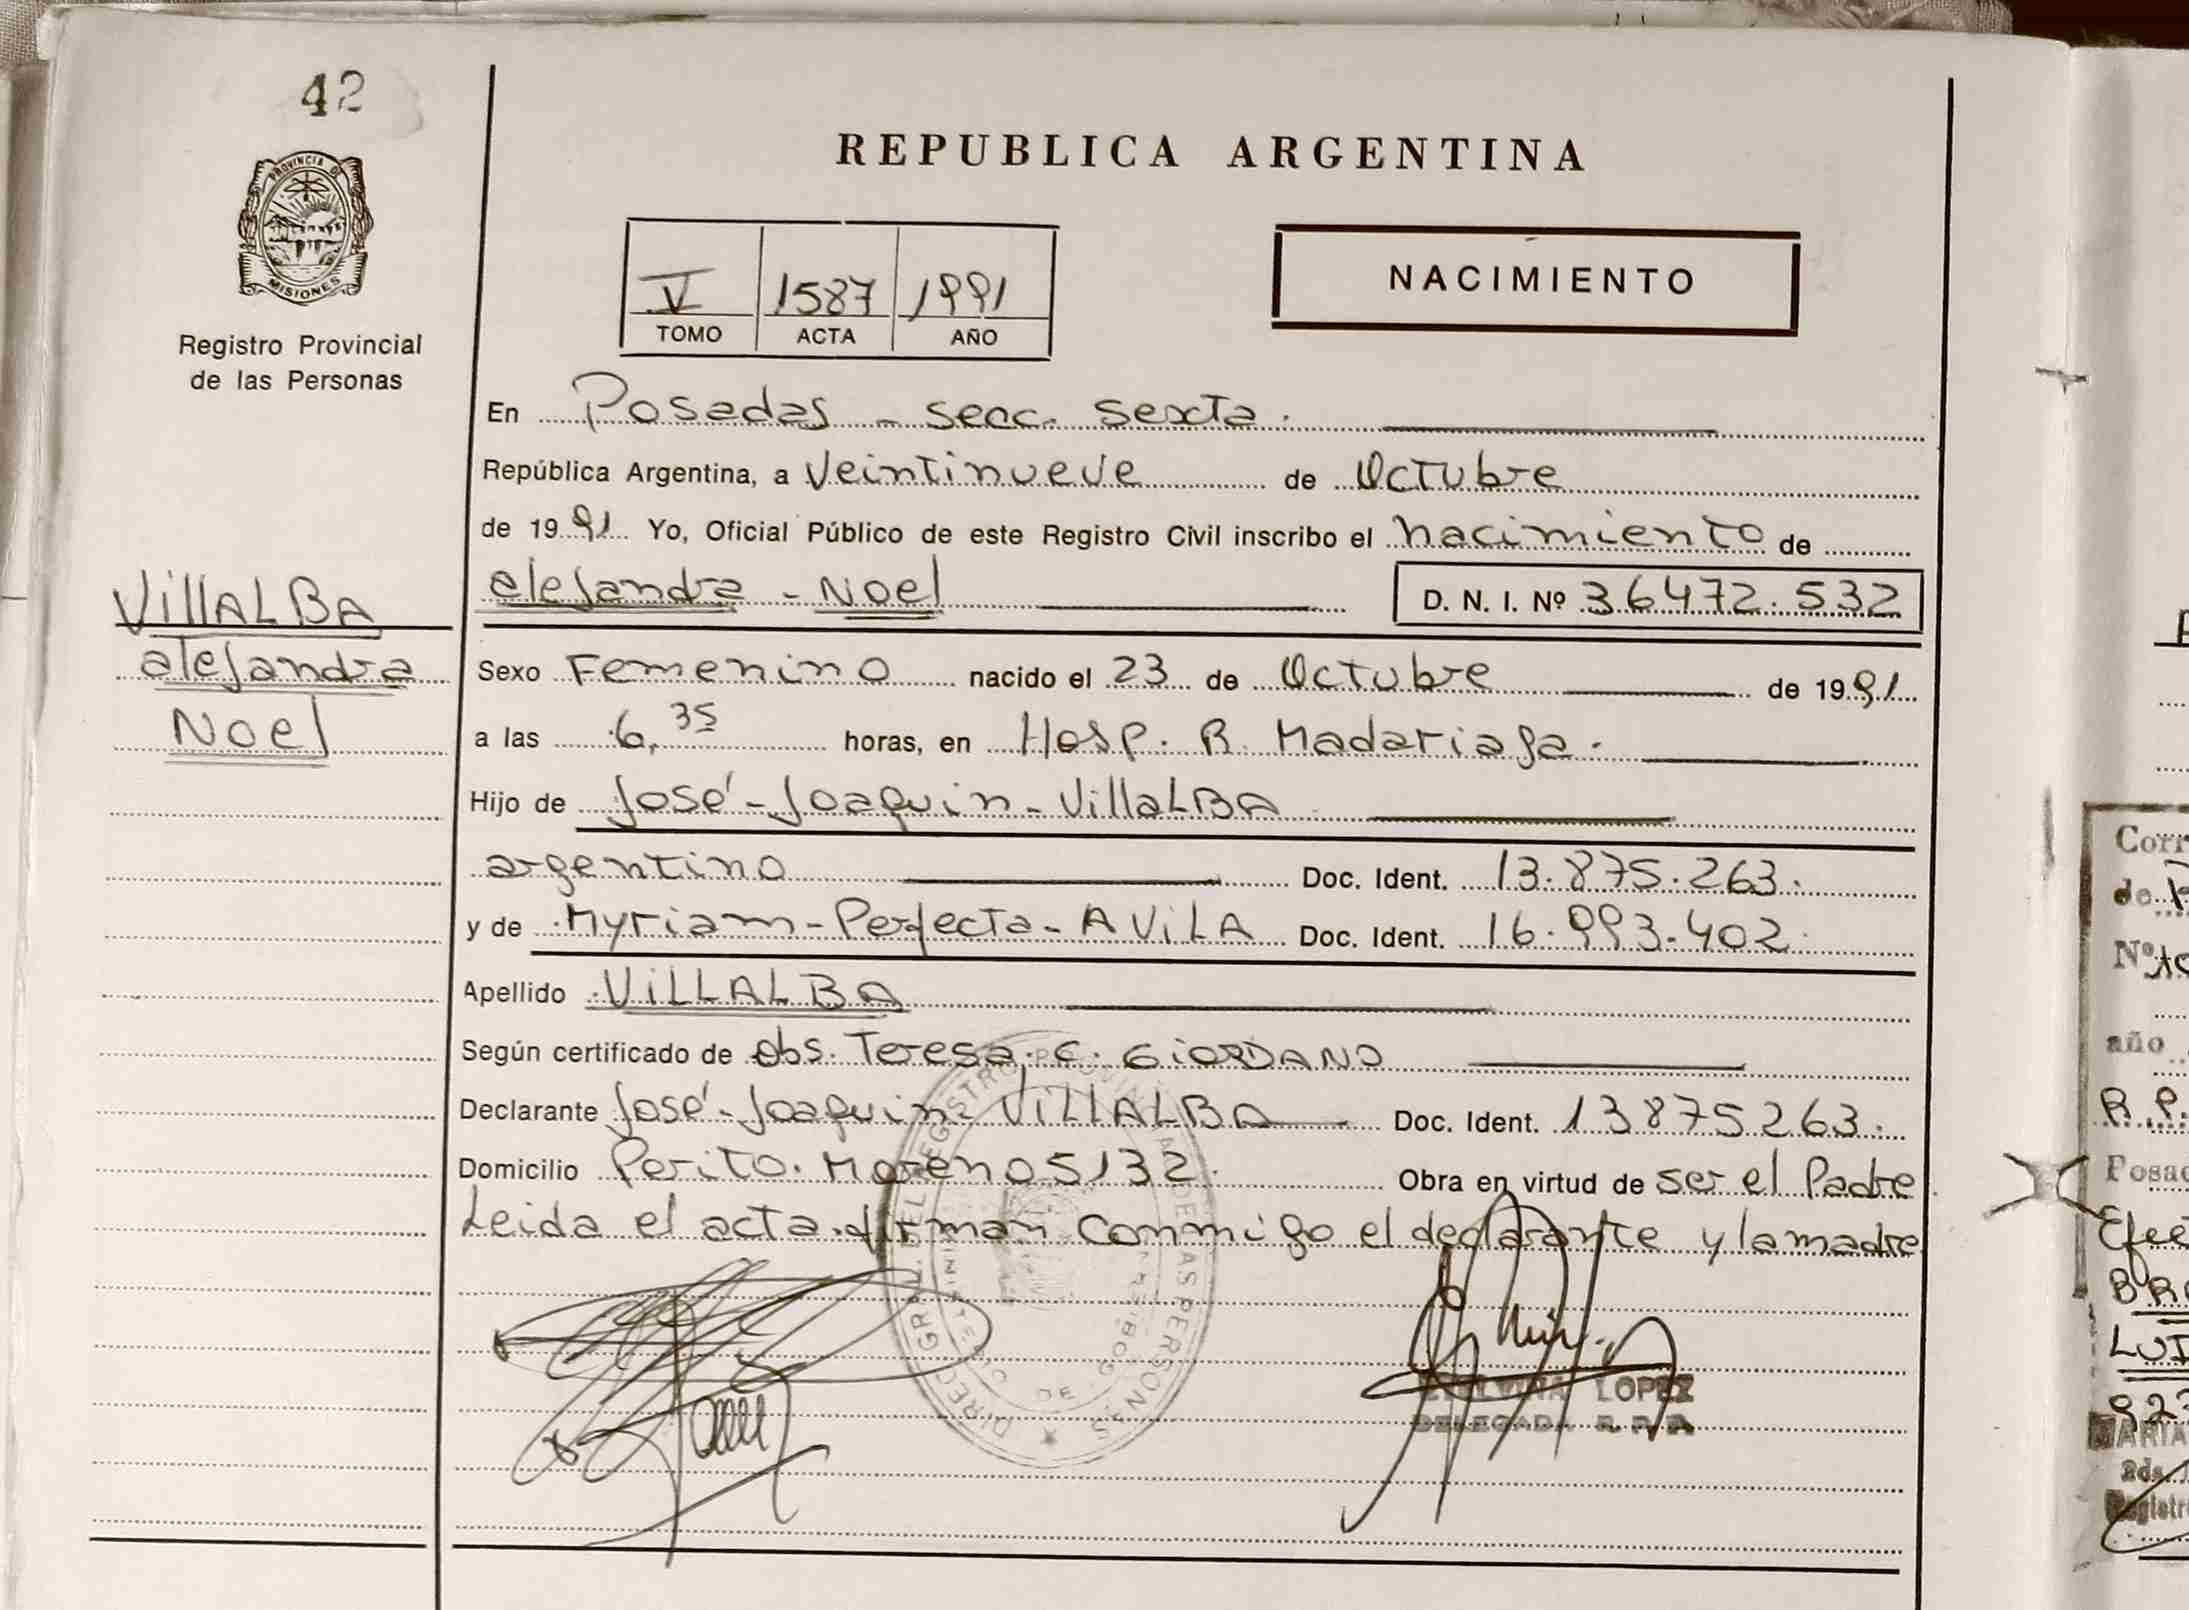 42
REPUBLICA ARGENTINA
PROVINCIA DE
MISIONES
Registro Provincial
de las Personas
V 1587 1991
TOMO ACTA AÑO
NACIMIENTO
En Posadas - secc. sexta.
República Argentina, a veintinueve de Octubre
de 1991 Yo, Oficial Público de este Registro Civil inscribo el nacimiento de
alejandra - Noel D. N. I. Nº 36472.532
VillALBA
alejandra
Noel
Sexo Femenino nacido el 23 de Octubre de 1991
a las 6,35 horas, en Hosp. R. Madariaga.
Hijo de José - Joaquin - VillaLBA
argentino Doc. Ident. 13.875.263.
y de Myriam - Perfecta - AViLA Doc. Ident. 16.993.402.
Apellido ViLLALBA
Según certificado de obs. Teresa. C. GiORDANO
Declarante José - Joaquin - ViLLALBA Doc. Ident. 13875263.
Domicilio Perito. Moreno 5132. Obra en virtud de ser el Padre
Leida el acta. firman conmigo el declarante y la madre
DIREC. GRAL. DEL REGISTRO PROVINCIAL DE LAS PERSONAS
MINISTERIO DE GOBIERNO
LOPEZ
DELEGADA R. P. P.
Corr
de
Nº
año
R. P.
Posad
Efec
BR
LUI